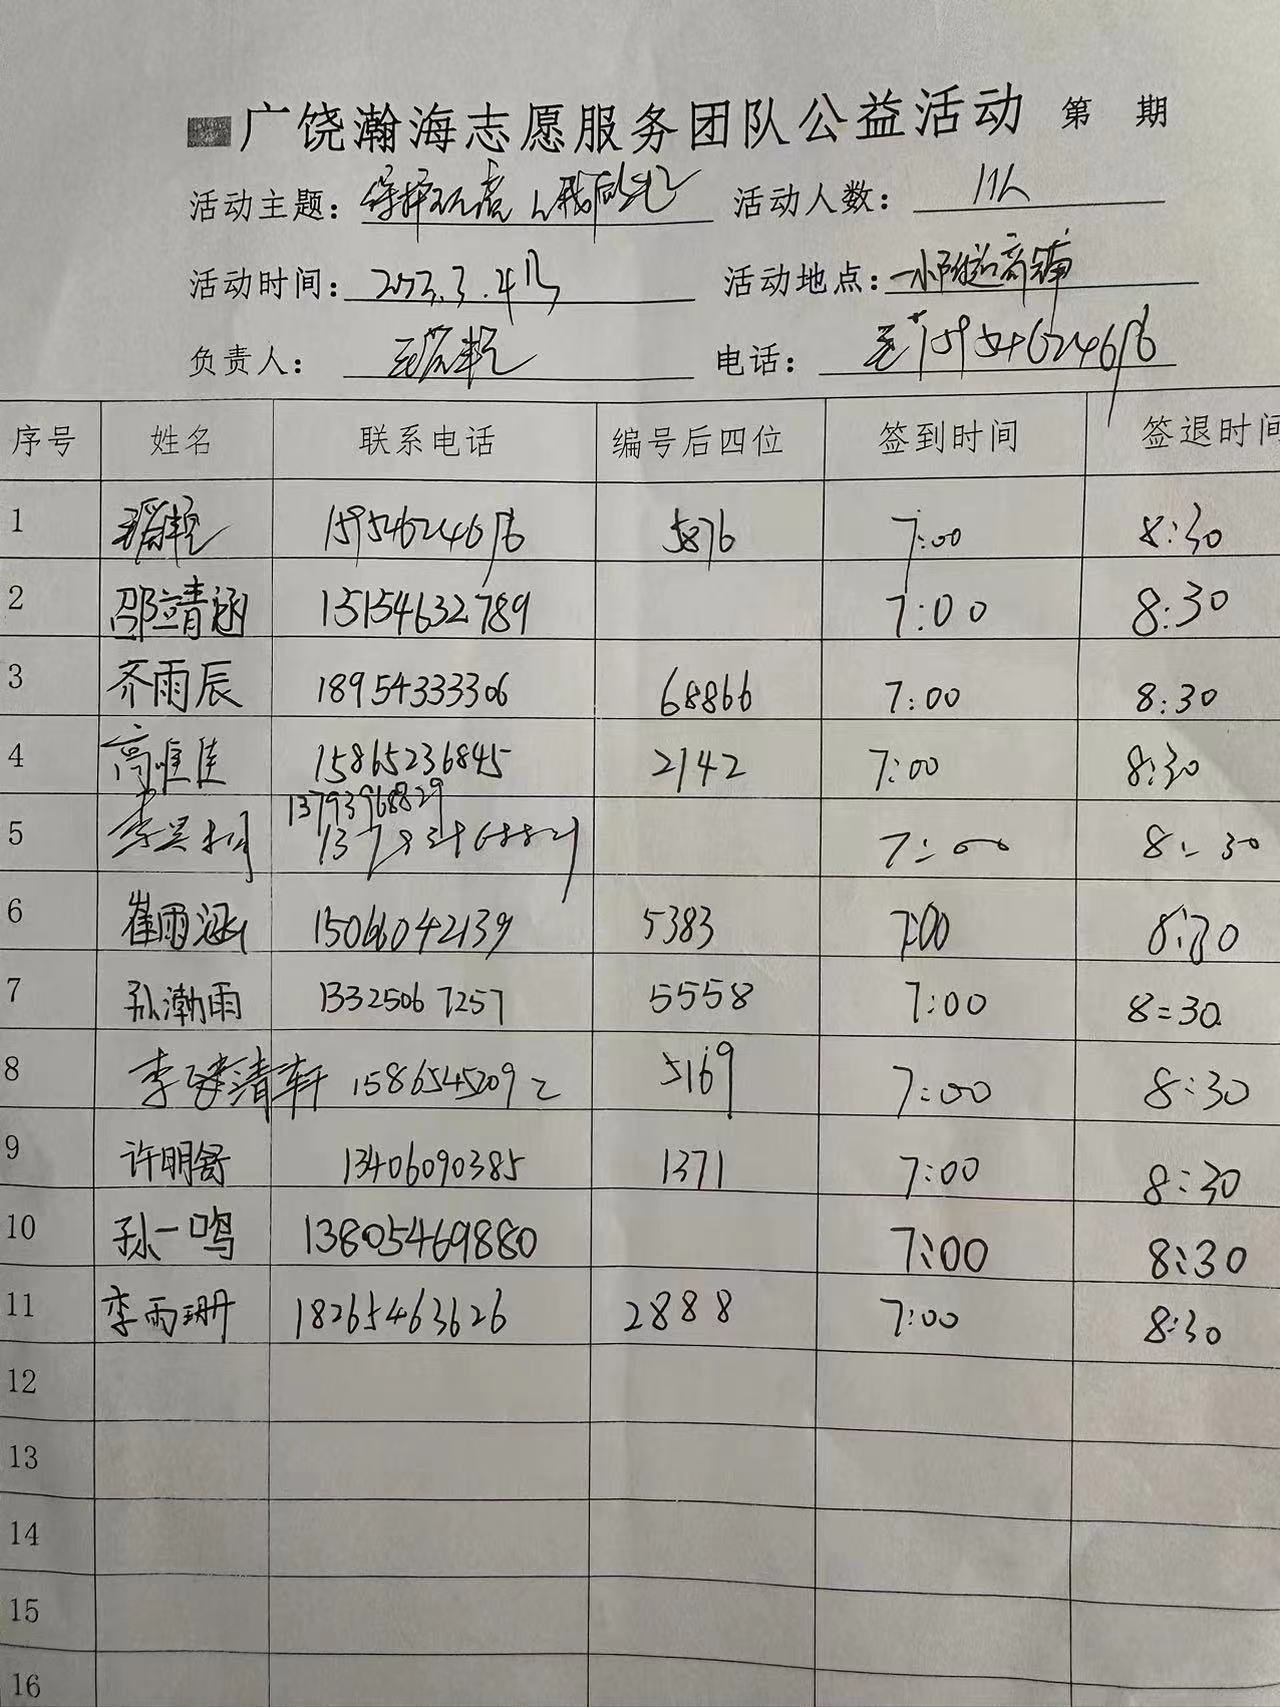 广饶瀚海志愿服务团队公益活动 第 期
活动主题： 保护环境 人我同行 活动人数： 11人
活动时间： 3.4 活动地点： 商铺
负责人： 电话：
序号 姓名 联系电话 编号后四位 签到时间 签退时间
1 5876 7:00 8:30
2 邵靖涵 15154632789 7:00 8:30
3 齐雨辰 18954333306 68866 7:00 8:30
4 高唯佳 15865236845 2142 7:00 8:30
13793968829
5 李 7:00 8:30
6 崔雨涵 15066042139 5383 7:00 8:30
7 孙渤雨 13325067257 5558 7:00 8:30
8 李 清轩 15865452092 5169 7:00 8:30
9 许明舒 13406090385 1371 7:00 8:30
10 孙一鸣 13805469880 7:00 8:30
11 李雨珊 18265463626 2888 7:00 8:30
12
13
14
15
16